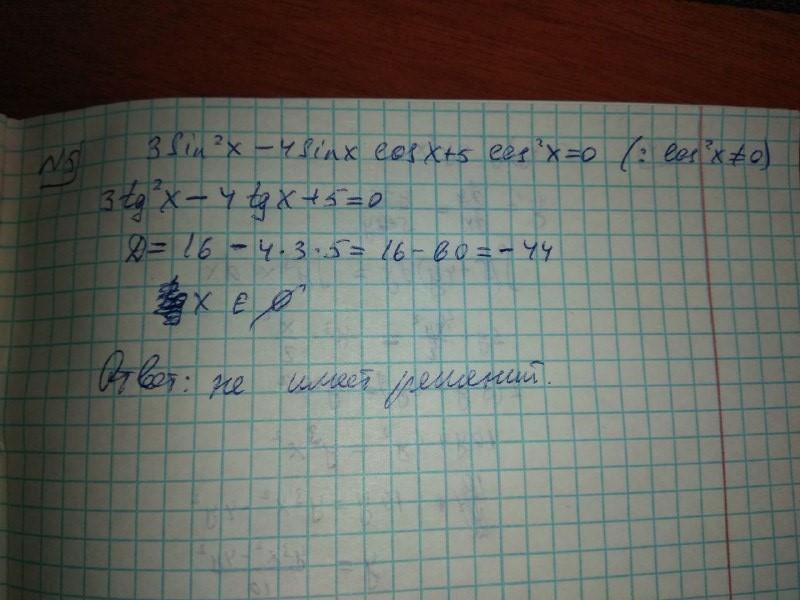 №5 3 sin²x – 4 sinx cosx + 5 cos²x = 0 (: cos²x ≠ 0)
3 tg²x – 4 tgx + 5 = 0
D = 16 – 4 · 3 · 5 = 16 – 60 = – 44
x ∈ ∅
Ответ: не имеет решений.